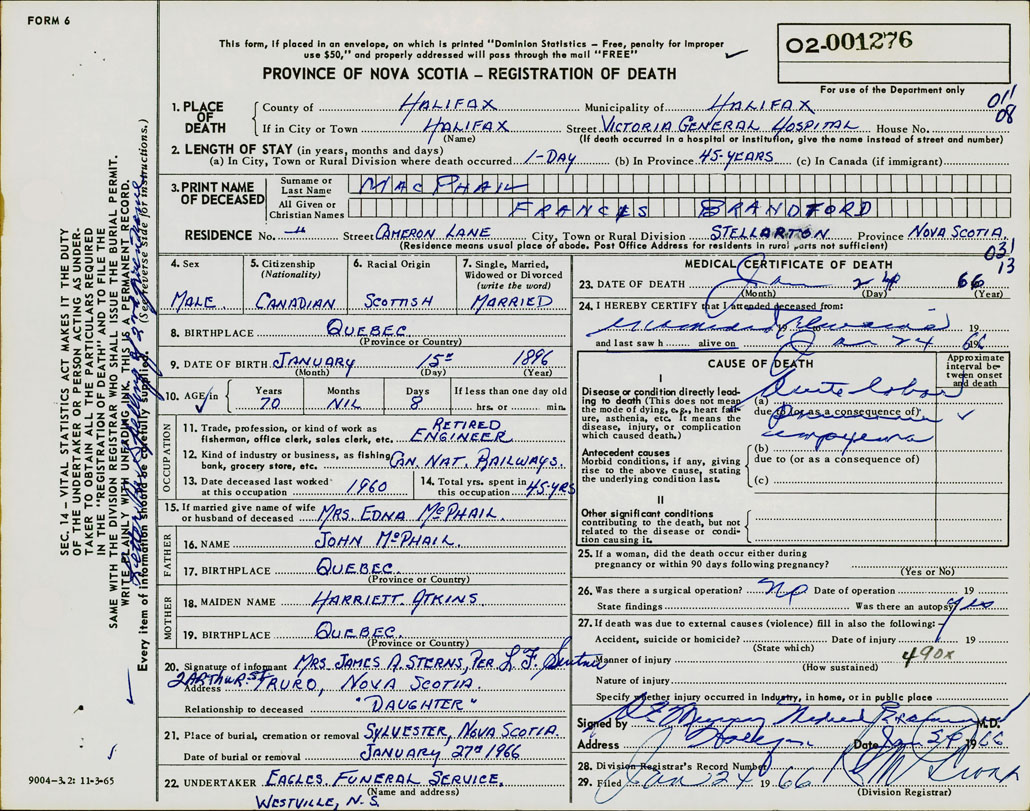 FORM 6
This form, if placed in an envelope, on which is printed "Dominion Statistics – Free, penalty for improper
use $50," and properly addressed will pass through the mail "FREE"
02-001276
PROVINCE OF NOVA SCOTIA – REGISTRATION OF DEATH
For use of the Department only
011
08
1. PLACE OF DEATH
County of HALIFAX Municipality of HALIFAX
If in City or Town HALIFAX Street VICTORIA GENERAL HOSPITAL House No.
(Name) (If death occurred in a hospital or institution, give the name instead of street and number)
2. LENGTH OF STAY (in years, months and days)
(a) In City, Town or Rural Division where death occurred 1-DAY (b) In Province 45-YEARS (c) In Canada (if immigrant)
3. PRINT NAME OF DECEASED
Surname or Last Name MACPHAIL
All Given or Christian Names FRANCIS BRANDFORD
RESIDENCE No. Street CAMERON LANE City, Town or Rural Division STELLARTON Province NOVA SCOTIA.
(Residence means usual place of abode. Post Office Address for residents in rural parts not sufficient)
031
13
SEC. 14 – VITAL STATISTICS ACT MAKES IT THE DUTY
OF THE UNDERTAKER OR PERSON ACTING AS UNDER-
TAKER TO OBTAIN ALL THE PARTICULARS REQUIRED
IN THE "REGISTRATION OF DEATH" AND TO FILE THE
SAME WITH THE DIVISION REGISTRAR WHO SHALL ISSUE THE BURIAL PERMIT.
WRITE PLAINLY WITH UNFADING INK. THIS IS A PERMANENT RECORD.
Every item of information should be carefully supplied. (See reverse side for instructions.)
4. Sex
MALE
5. Citizenship
(Nationality)
CANADIAN
6. Racial Origin
SCOTTISH
7. Single, Married,
Widowed or Divorced
(write the word)
MARRIED
8. BIRTHPLACE QUEBEC
(Province or Country)
9. DATE OF BIRTH JANUARY 15 1896
(Month) (Day) (Year)
10. AGE in
Years 70
Months NIL
Days 8
If less than one day old
hrs. or min.
OCCUPATION
11. Trade, profession, or kind of work as
fisherman, office clerk, sales clerk, etc. RETIRED ENGINEER
12. Kind of industry or business, as fishing,
bank, grocery store, etc. CAN. NAT. RAILWAYS.
13. Date deceased last worked
at this occupation 1960
14. Total yrs. spent in
this occupation 45-YRS
15. If married give name of wife
or husband of deceased MRS. EDNA MCPHAIL.
FATHER
16. NAME JOHN MCPHAIL.
17. BIRTHPLACE QUEBEC.
(Province or Country)
MOTHER
18. MAIDEN NAME HARRIETT. ATKINS
19. BIRTHPLACE QUEBEC.
(Province or Country)
20. Signature of informant MRS JAMES A. STERNS, PER L. F.
Address 2 ARTHUR. ST TRURO, NOVA SCOTIA.
Relationship to deceased "DAUGHTER"
21. Place of burial, cremation or removal SYLVESTER, NOVA SCOTIA.
Date of burial or removal JANUARY 27 1966
22. UNDERTAKER EAGLES. FUNERAL SERVICE.
(Name and address)
WESTVILLE, N.S.
9004-3.2: 11-3-65
MEDICAL CERTIFICATE OF DEATH
23. DATE OF DEATH Jan 24 66
(Month) (Day) (Year)
24. I HEREBY CERTIFY that I attended deceased from:
19 to 19
and last saw h alive on Jan 24 66
CAUSE OF DEATH
Approximate
interval be-
tween onset
and death
I
Disease or condition directly lead-
ing to death (This does not mean
the mode of dying, e.g., heart fail-
ure, asthenia, etc. It means the
disease, injury, or complication
which caused death.)
(a) Acute lobar
due to (or as a consequence of)
Pneumonia
empyema
Antecedent causes
Morbid conditions, if any, giving
rise to the above cause, stating
the underlying condition last.
(b)
due to (or as a consequence of)
(c)
II
Other significant conditions
contributing to the death, but not
related to the disease or condi-
tion causing it.
25. If a woman, did the death occur either during
pregnancy or within 90 days following pregnancy?
(Yes or No)
26. Was there a surgical operation? No Date of operation 19
State findings Was there an autopsy? yes
27. If death was due to external causes (violence) fill in also the following:
Accident, suicide or homicide? Date of injury 19
(State which)
490x
Manner of injury
(How sustained)
Nature of injury
Specify whether injury occurred in industry, in home, or in public place
Signed by Medical M.D.
Address Date Jan 24 1966
28. Division Registrar's Record Number
29. Filed Jan 24 1966
(Division Registrar)